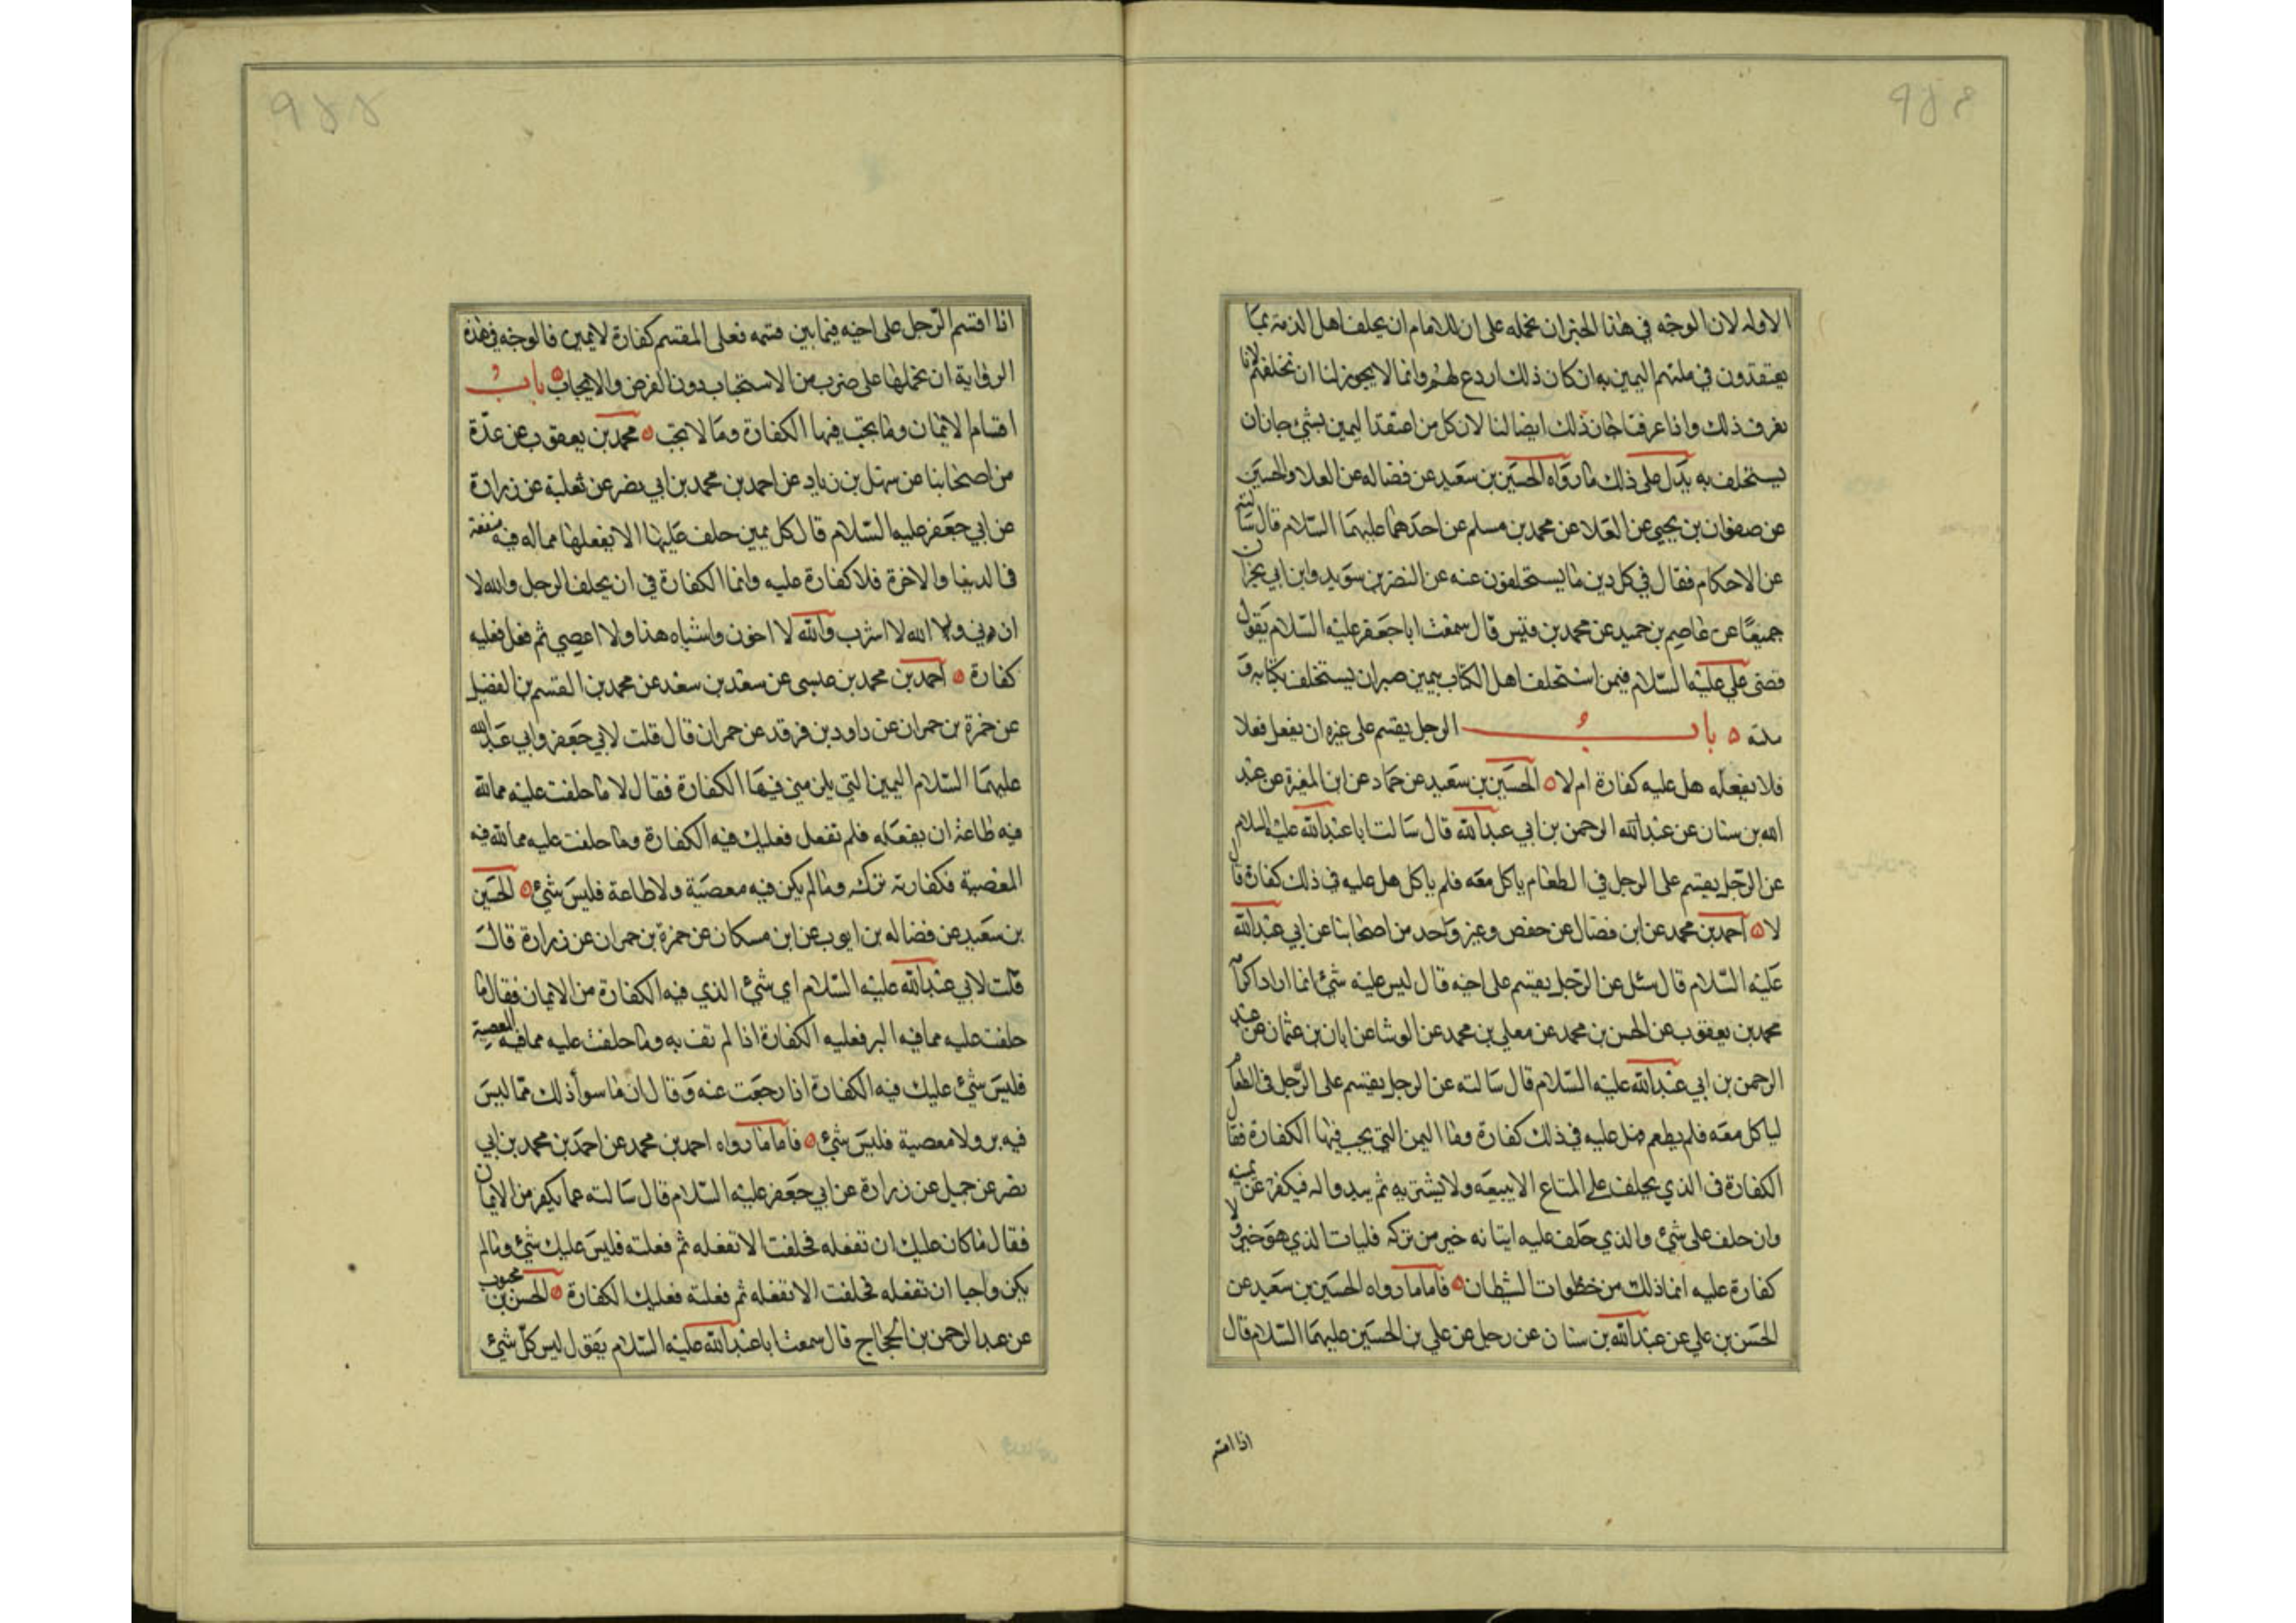 الاوله لان الوجه في هذا الخبر ان نحمله على ان للامام ان يحلف اهل الذمة بما
يعتقدون في ملتهم اليمين به ان كان ذلك اردع لهم وانما لا يجوز لنا ان نحلفهم لانا
نعرف ذلك واذا عرفنا جاز ذلك ايضا لنا لان كل من اعتقد اليمين بشئ جاز ان
يستحلف به يدل على ذلك ما رواه الحسين بن سعيد عن فضاله عن العلا والحسين
عن صفوان بن يحيى عن العلا عن محمد بن مسلم عن احدهما عليهما السلام قال سالته
عن الاحكام فقال في كل دين ما يستحلفون عنه عن النضر بن سويد وابن ابي نجران
جميعا عن عاصم بن حميد عن محمد بن قيس قال سمعت ابا جعفر عليه السلام يقول
قضى علي عليه السلام فيمن استحلف اهل الكتاب بيمين صبر ان يستحلف بكتابه و
ملته ه باب الرجل يقسم على غيره ان يفعل فعلا
فلا يفعله هل عليه كفارة ام لا ه الحسين بن سعيد عن حماد عن ابن المغيرة عن عبد
الله بن سنان عن عبدالله الرحمن بن ابي عبدالله قال سالت ابا عبدالله عليه السلام
عن الرجل يقسم على الرجل في الطعام ياكل معه فلم ياكل هل عليه في ذلك كفارة قال
لا ه احمد بن محمد عن ابن فضال عن حفص وغير واحد من اصحابنا عن ابي عبدالله
عليه السلام قال سئل عن الرجل يقسم على اخيه قال ليس عليه شئ انما اراد اكرامه
محمد بن يعقوب عن الحسن بن محمد عن معلي بن محمد عن الوشا عن ابان بن عثمان عن عبد
الرحمن بن ابي عبدالله عليه السلام قال سالته عن الرجل يقسم على الرجل في الطعام
لياكل معه فلم يطعم هل عليه في ذلك كفارة وما اليمن التي يجب فيها الكفارة فقال
الكفارة في الذي يحلف على المتاع الا يبيعه ولا يشتريه ثم يبدو له فيكفر عن يمينه
وان حلف على شئ والذي حلف عليه ايتانه خير من تركه فليات الذي هو خير ولا
كفارة عليه انما ذلك من خطوات الشيطان ه فاما ما رواه الحسين بن سعيد عن
الحسن بن علي عن عبدالله بن سنان عن رجل عن علي بن الحسين عليهما السلام قال
اذا اقسم
اذا اقسم الرجل على اخيه فيما بين قسمه فعلى المقسم كفارة لا يمين فالوجه في هذه
الرواية ان نحملها على ضرب من الاستحباب دون الفرض والايجاب ه باب
اقسام الايمان وما يجب فيها الكفارة وما لا تجب ه محمد بن يعقوب عن عدة
من اصحابنا عن سهل بن زياد عن احمد بن محمد بن ابي نصر عن ثعلبة عن زرارة
عن ابي جعفر عليه السلام قال كل يمين حلف عليها الا يفعلها مما له فيه منفعة
في الدنيا والاخرة فلا كفارة عليه وانما الكفارة في ان يحلف الرجل والله لا
ازني والله لا اشرب والله لا اخون واشباه هذا ولا اعصي ثم فعل فعليه
كفارة ه احمد بن محمد بن عيسى عن سعد بن سعد عن محمد بن القسم بن الفضيل
عن حمزة بن حمران عن داود بن فرقد عن حمران قال قلت لابي جعفر وابي عبدالله
عليهما السلام اليمين التي يلزمني فيها الكفارة فقال لا ما حلفت عليه مما لله
فيه طاعة ان يفعله فلم تفعل فعليك فيه الكفارة وما حلفت عليه مما لله فيه
المعصية فكفارته تركه وما لم يكن فيه معصية ولا طاعة فليس شئ ه الحسين
بن سعيد عن فضاله بن ايوب عن ابن مسكان عن حمزة بن حمران عن زرارة قال
قلت لابي عبدالله عليه السلام اي شئ الذي فيه الكفارة من الايمان فقال ما
حلفت عليه مما فيه البر فعليه الكفارة اذا لم تف به وما حلفت عليه مما فيه المعصية
فليس شئ عليك فيه الكفارة اذا رجعت عنه وقال ان ما سوا ذلك مما ليس
فيه بر ولا معصية فليس شئ ه فاما ما رواه احمد بن محمد عن احمد بن محمد بن ابي
نصر عن جميل عن زرارة عن ابي جعفر عليه السلام قال سالته عما يكفر من الايمان
فقال ما كان عليك ان تفعله فحلفت الا تفعله ثم فعلته فليس عليك شئ وما لم
يكن واجبا ان تفعله فحلفت الا تفعله ثم فعلته فعليك الكفارة ه الحسن بن محبوب
عن عبد الرحمن بن الحجاج قال سمعت ابا عبدالله عليه السلام يقول ليس كل شئ